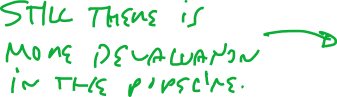 STILL THERE IS
MORE DEVALUATION
IN THE PIPELINE.